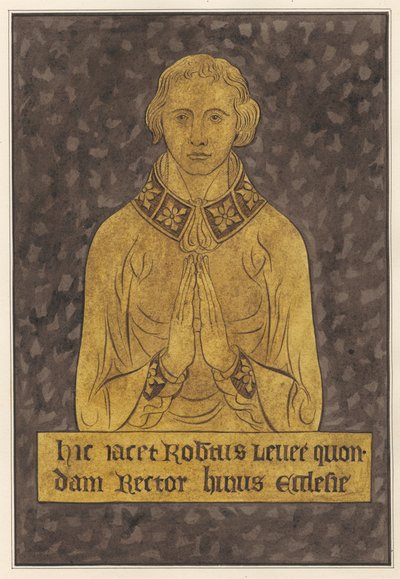 hic iacet Robtus Leuee quon-
dam Rector huius Ecclesie